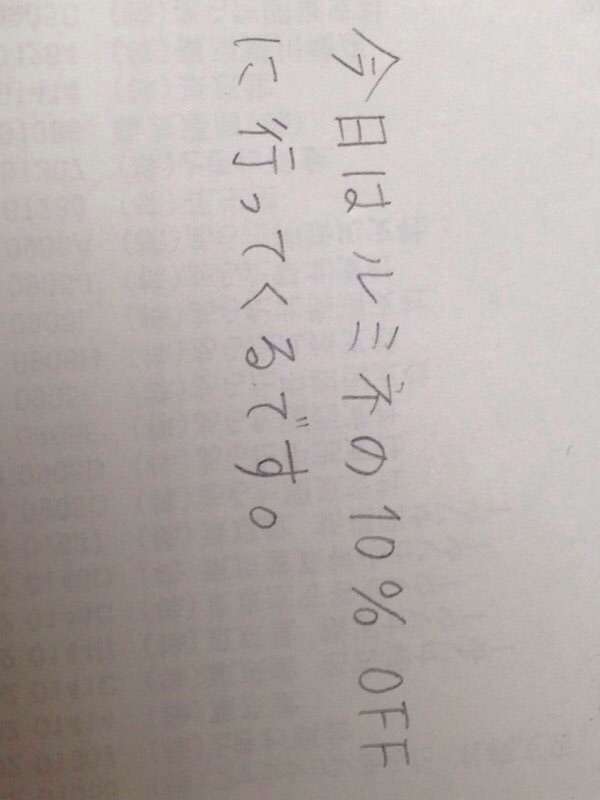 今日はルミネの10% OFF
に行ってくるです。